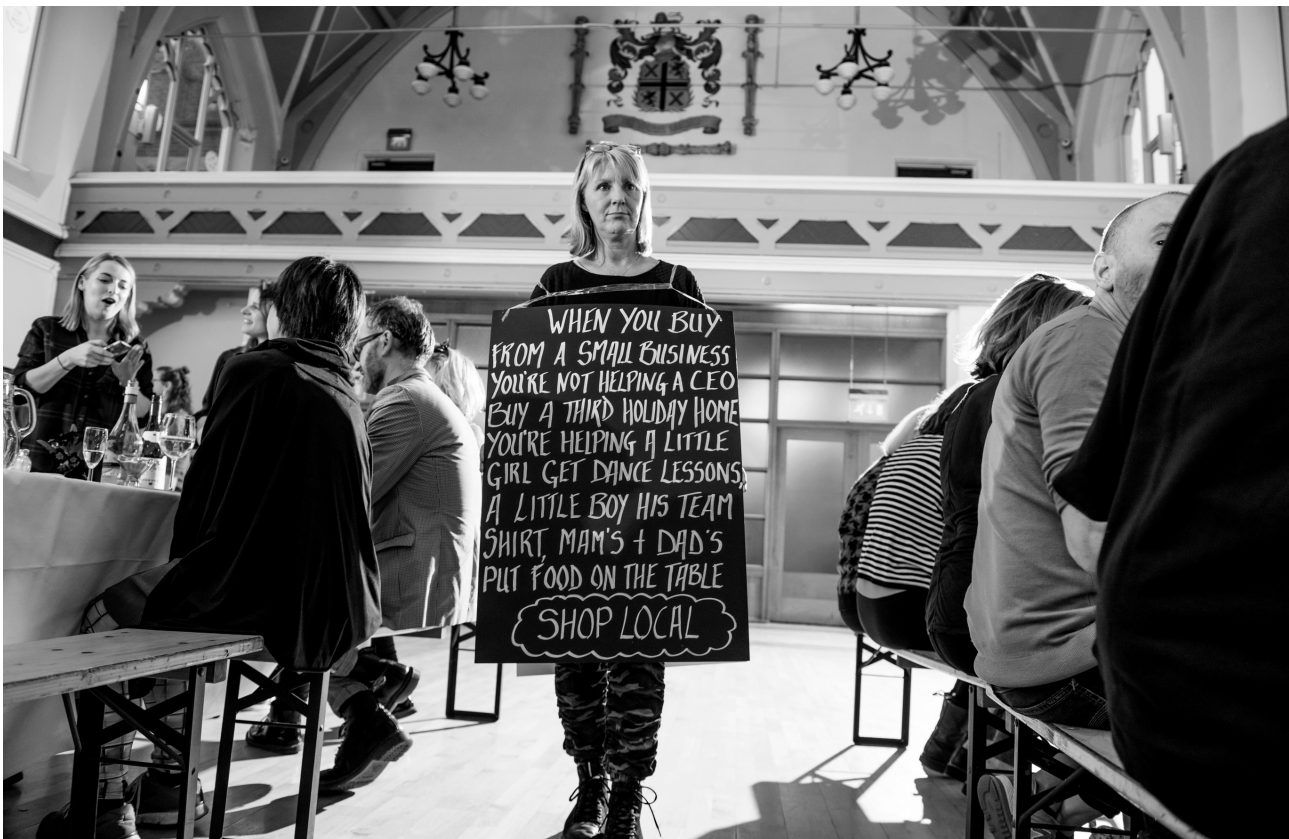 WHEN YOU BUY
FROM A SMALL BUSINESS
YOU'RE NOT HELPING A CEO
BUY A THIRD HOLIDAY HOME
YOU'RE HELPING A LITTLE
GIRL GET DANCE LESSONS,
A LITTLE BOY HIS TEAM
SHIRT, MAM'S + DAD'S
PUT FOOD ON THE TABLE
SHOP LOCAL